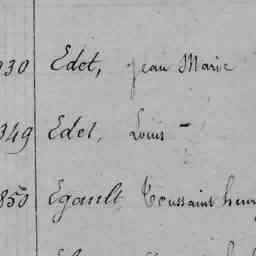 930 Edet, Jean Marie
349 Edet, Louis -
850 Egault, Toussaint henry